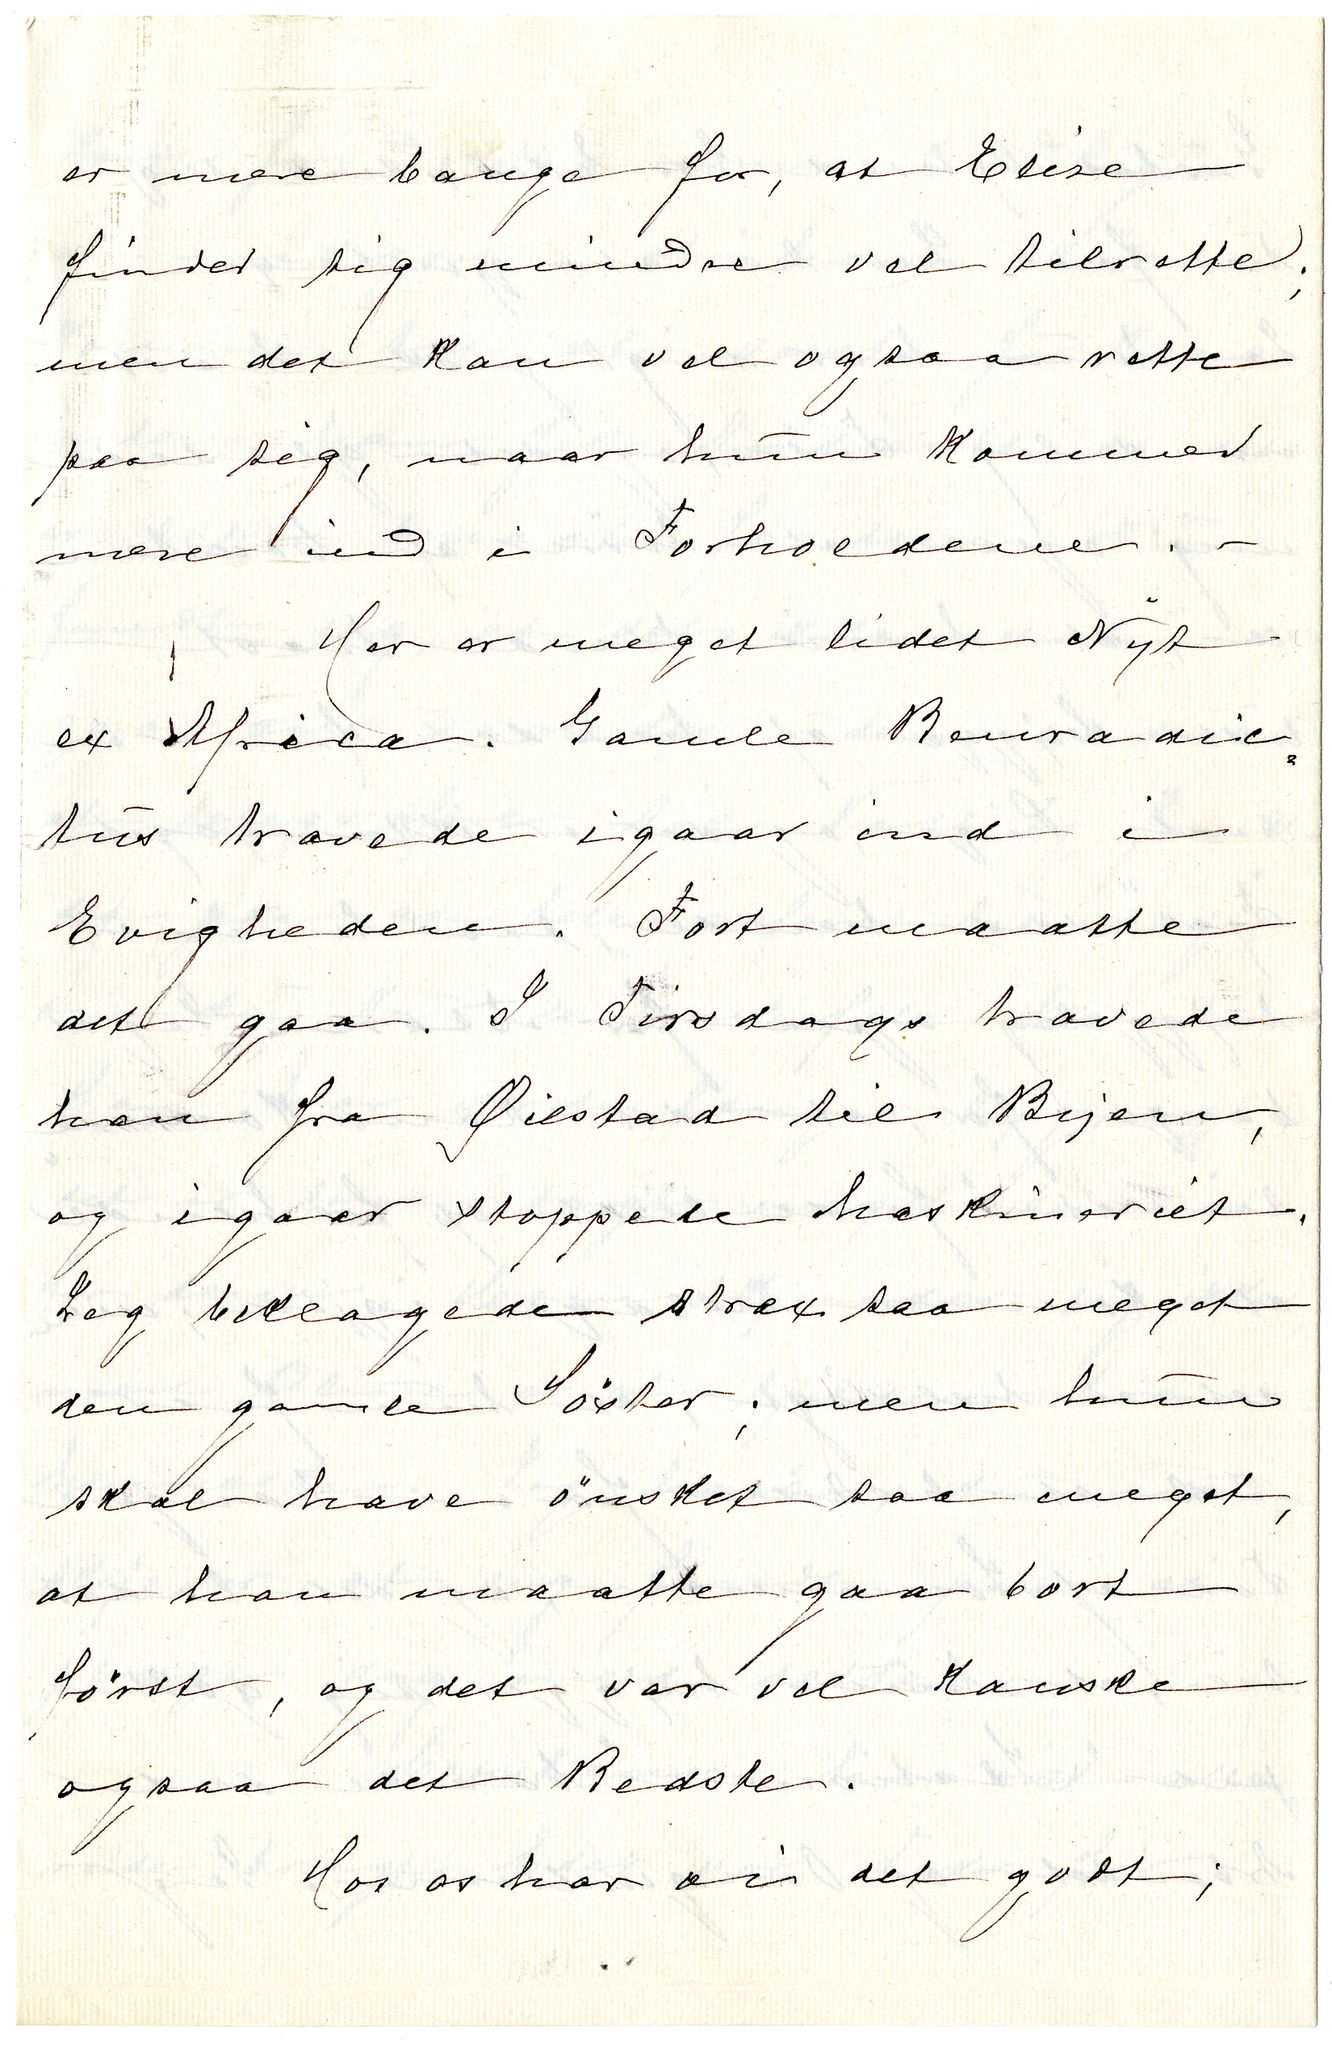 er mere bange for, at Elise
finder sig mindre vel tilrette;
men det kan vel ogsaa rette
paa sig, naar hun kommer
mere ind i Forholdene. –
Her er meget lidet Nyt
ex Africa. Gamle
tus travede igaar ind i
Evigheden. Fort maatte
det gaa. I Tirsdags travede
han fra Øiestad til Byen,
og igaar stoppede Maskineriet.
Jeg beklagede strax saa meget
den gamle Söster; men hun
skal have önsket saa meget,
at han maatte gaa bort
först, og det var vel kanske
ogsaa det Bedste.
Hos os har vi det godt;